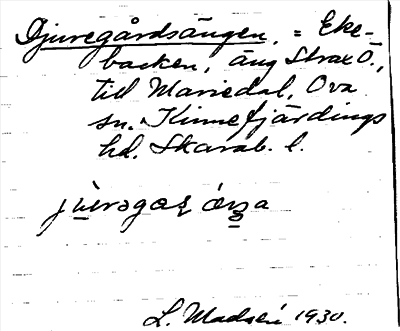 Djuregårdsängen, = Eke-
backen, äng Strax Ö.,
till Mariedal, Ova
sn. Kinnefjärdings
hd. Skarab. l.
L. Madsén 1930.